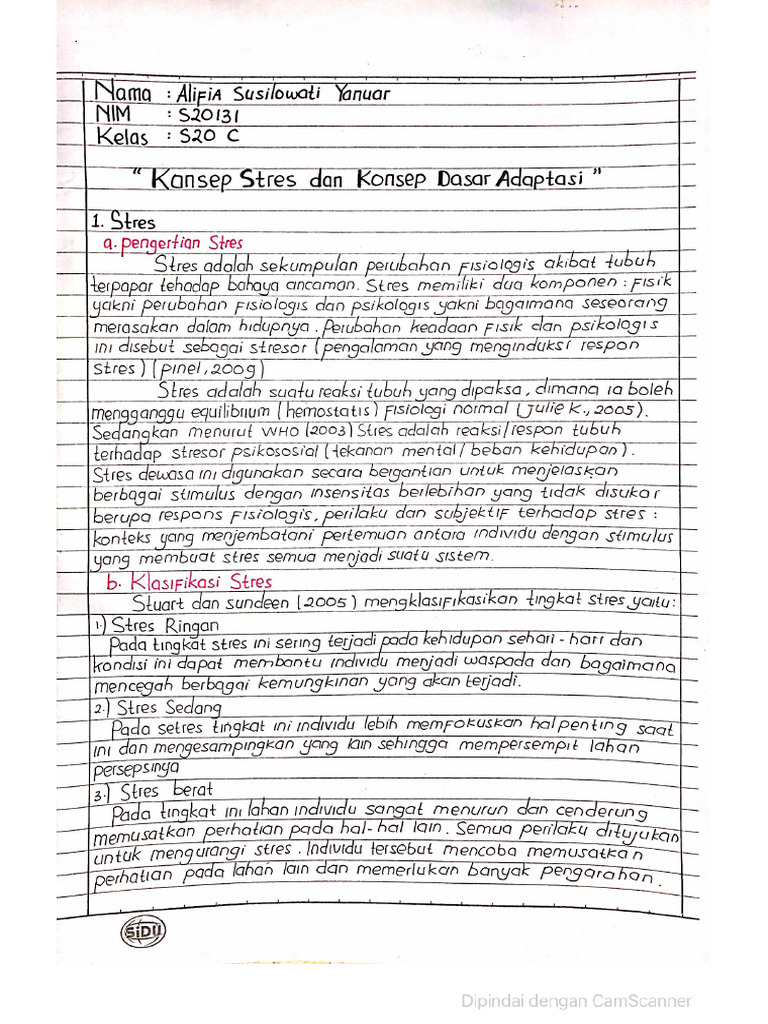 Nama : Alifia Susilowati Yanuar
NIM : S20131
Kelas : S20 C
" Konsep Stres dan Konsep Dasar Adaptasi "
1. Stres
a. pengertian Stres
Stres adalah sekumpulan perubahan fisiologis akibat tubuh
terpapar tehadap bahaya ancaman. Stres memiliki dua komponen : fisik
yakni perubahan fisiologis dan psikologis yakni bagaimana seseorang
merasakan dalam hidupnya. Perubahan keadaan fisik dan psikologis
ini disebut sebagai stresor (pengalaman yang menginduksi respon
stres) (pinel, 2009)
Stres adalah suatu reaksi tubuh yang dipaksa, dimana ia boleh
mengganggu equilibrium (hemostatis) fisiologi normal (Julie K., 2005).
Sedangkan menurut WHO (2003) Stres adalah reaksi/respon tubuh
terhadap stresor psikososial (tekanan mental/beban kehidupan).
Stres dewasa ini digunakan secara bergantian untuk menjelaskan
berbagai stimulus dengan insensitas berlebihan yang tidak disukai
berupa respons fisiologis, perilaku dan subjektif terhadap stres :
konteks yang menjembatani pertemuan antara individu dengan stimulus
yang membuat stres semua menjadi suatu sistem.
b. Klasifikasi Stres
Stuart dan sundeen (2005) mengklasifikasikan tingkat stres yaitu:
1.) Stres Ringan
Pada tingkat stres ini sering terjadi pada kehidupan sehari-hari dan
kondisi ini dapat membantu individu menjadi waspada dan bagaimana
mencegah berbagai kemungkinan yang akan terjadi.
2.) Stres Sedang
Pada setres tingkat ini individu lebih memfokuskan hal penting saat
ini dan mengesampingkan yang lain sehingga mempersempit lahan
persepsinya
3.) Stres berat
Pada tingkat ini lahan individu sangat menurun dan cenderung
memusatkan perhatian pada hal-hal lain. Semua perilaku ditujukan
untuk mengurangi stres. Individu tersebut mencoba memusatkan
perhatian pada lahan lain dan memerlukan banyak pengarahan.
SiDU
Dipindai dengan CamScanner